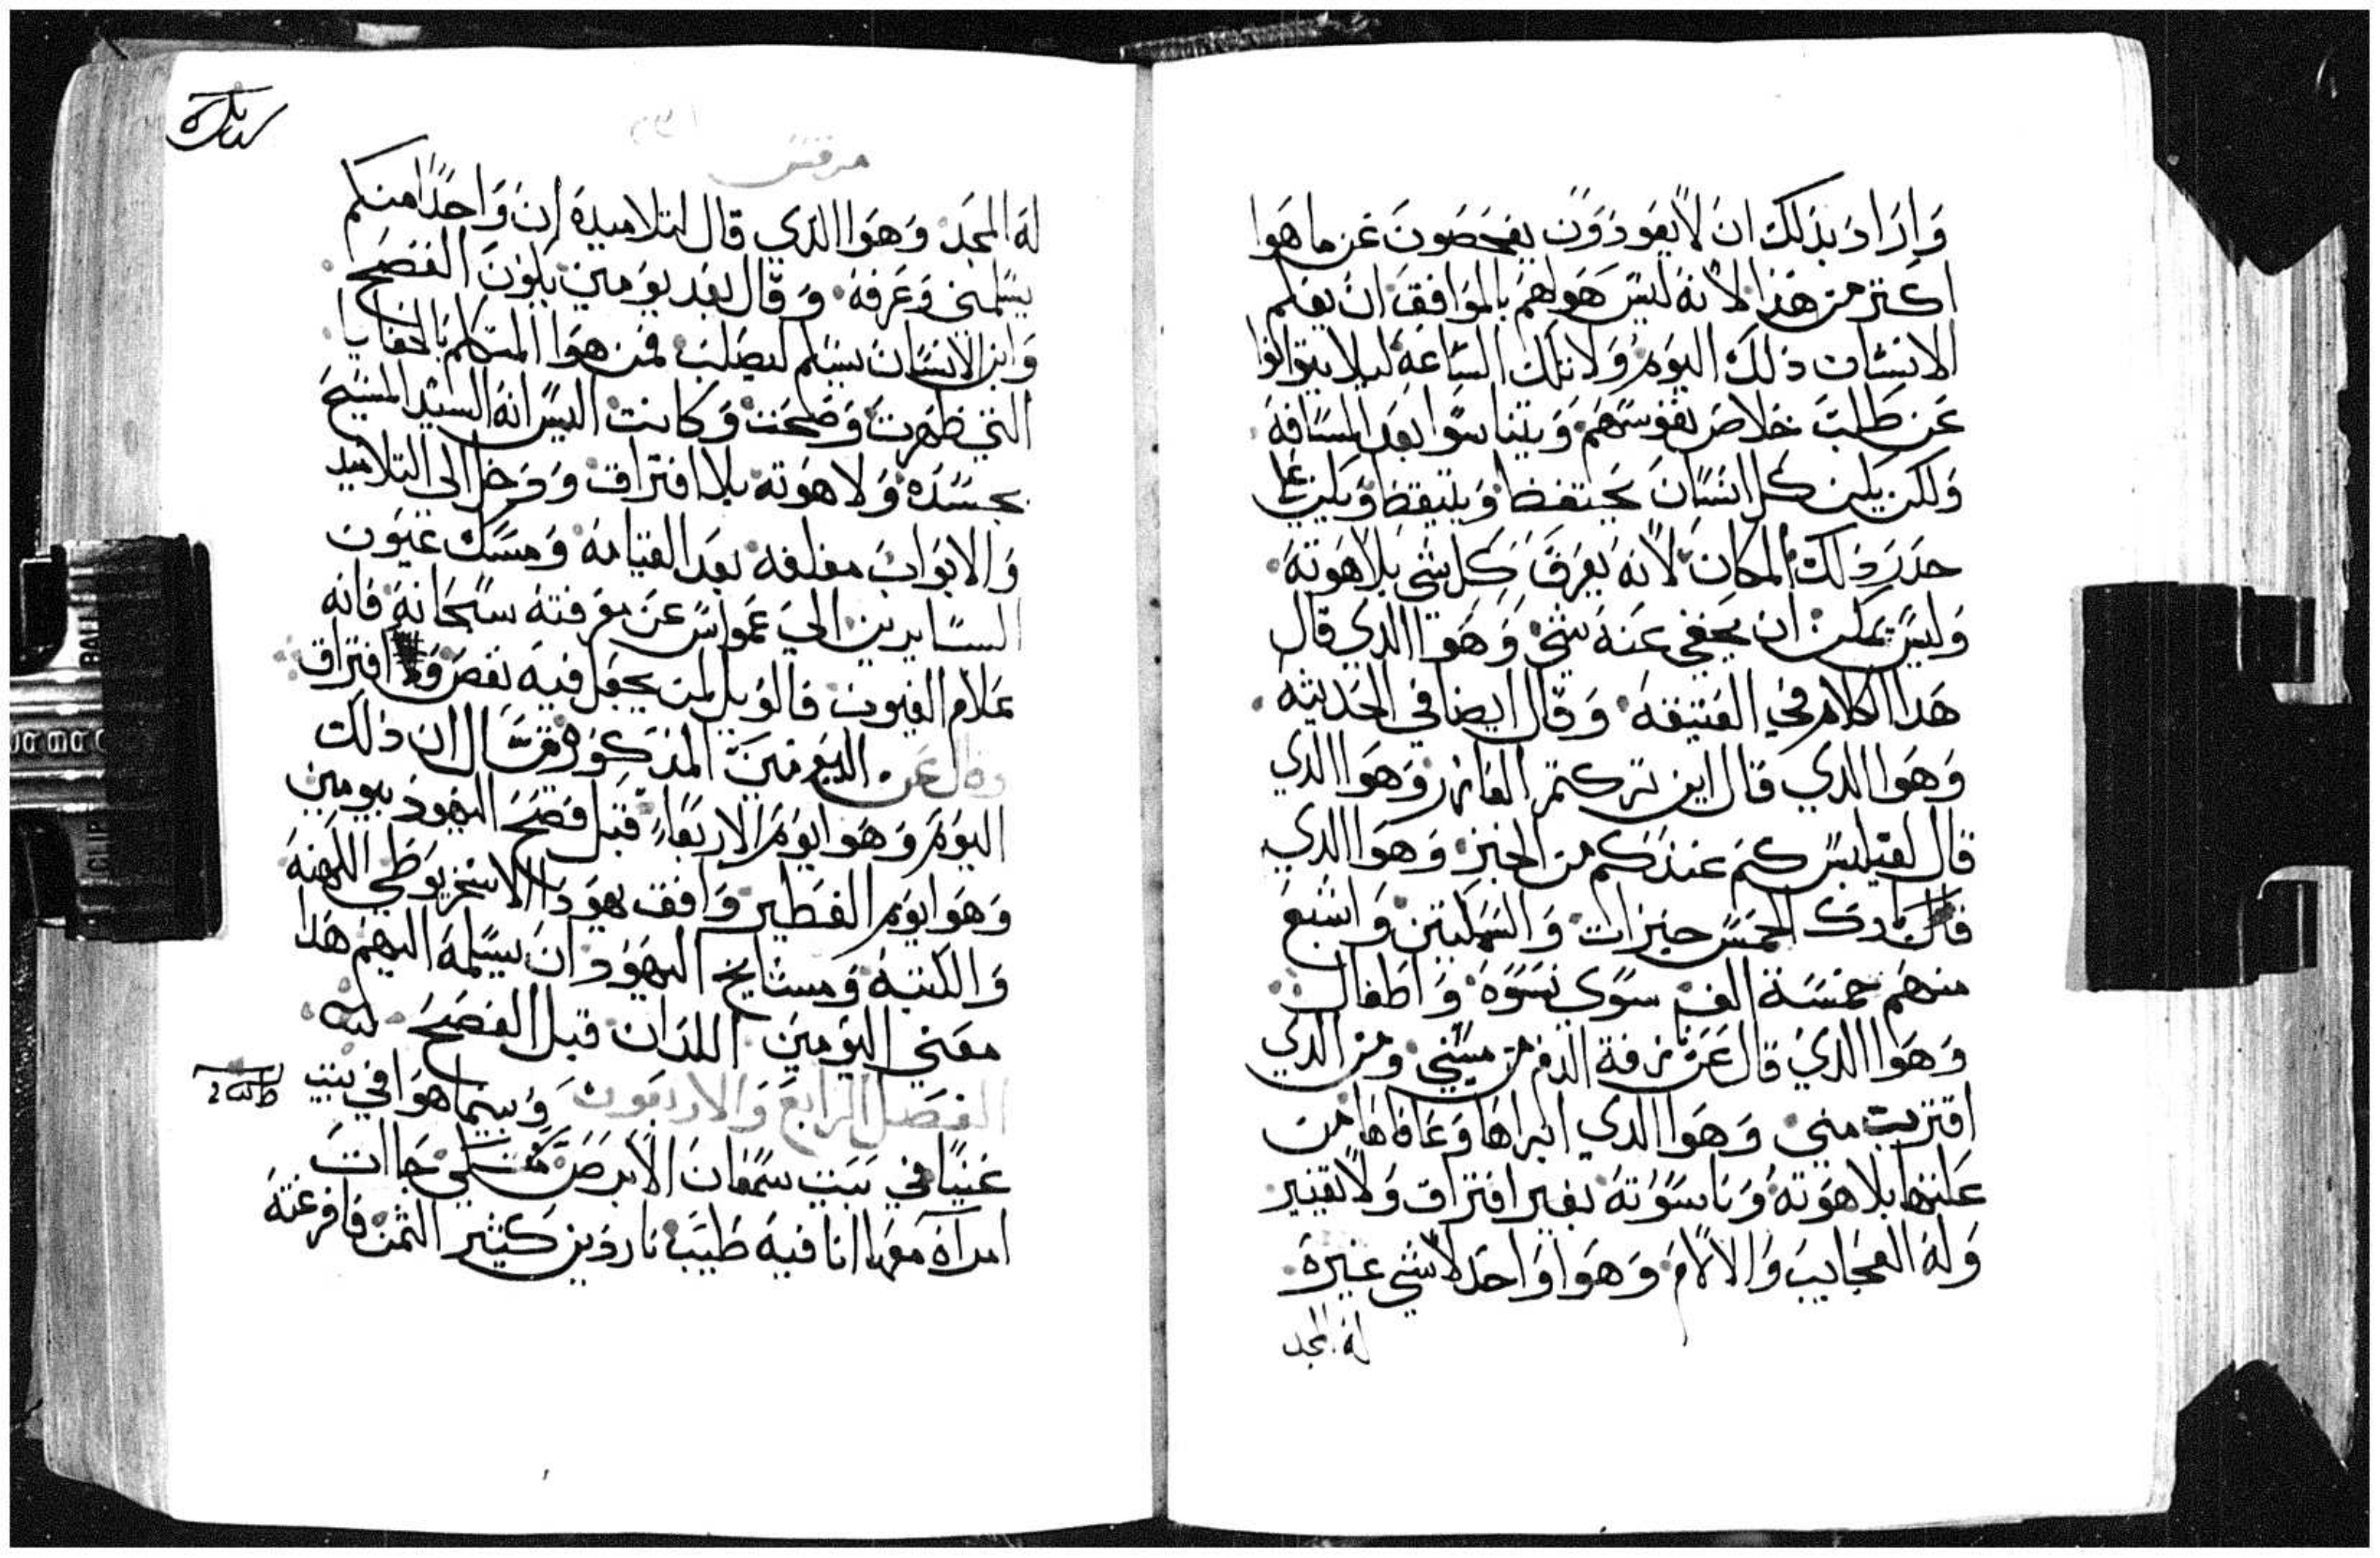 وَارَادَ بذلك ان لا يعودون يفحصون عن ما هوا
اكتر من هذا لانه ليس هوا لهم بالموافق ان يعلم
الانسان ذلك اليوم ولا تلك الساعه ليلا يتوانوا
عن طلب خلاص نفوسهم ويتناسوا بعد المسافه
ولكن يكن كل انسان يحتفظ ويتيقظ ويكن على
حدر ذلك المكان لانه يعرف كل شي بلاهوته
وليس يمكن ان يخفي عنه شي وهوا الدي قال
هدا الكلام في العتيقه وقال ايضا في الحديثه
وهوا الدي قال اين تركتم العازر وهوا الدي
قال لفيلبس كم عندكم من الخبز وهوا الدي
بارك الخمس خبزات والسمكتين واشبع
منهم خمسة الف سوي نسوه واطفال
وهوا الدي قال عن نزفة الدم من مسني ومن الدي
اقترب مني وهوا الدي ابراها وعافاها من
علتها بلاهوته وناسوته بغير افتراق ولا تغيير
وله العجايب والالام وهوا واحد لا شي غيره
له المجد
مرقس
له المجد وهوا الدي قال لتلاميده ان واحدا منكم
يسلمني وعرفه وقال بعد يومين يكون الفصح
وابن الانسان يسلم ليصلب فمن هوا المتكلم بالخفايا
التي ظهرت وصحت وكانت اليس انه السيد المسيح
بجسده ولاهوته بلا افتراق وقد دخل الي التلاميد
والابواب مغلقه بعد القيامه ومسك عيون
السايرين الي عمواس عن معرفته سبحانه فانه
علام الغيوب فالويل لمن يجعل فيه نقص ولا افتراق
وقال عن اليومين المذكوره مرقس قال ان ذلك
اليوم وهوا يوم الاربعا قبل فصح اليهود بيومين
وهوا يوم الفطير وافق يهودا الاسخريوطي الكهنه
والكتبه ومشايخ اليهود ان يسلمه اليهم هدا
معني اليومين اللدان قبل الفصح
الفصل الرابع والاربعون وبينما هوا في بيت
عنيا في بيت سمعان الابرص متكي جاات
امراة معها انا فيه طيب ناردين كثير الثمن فافرغته